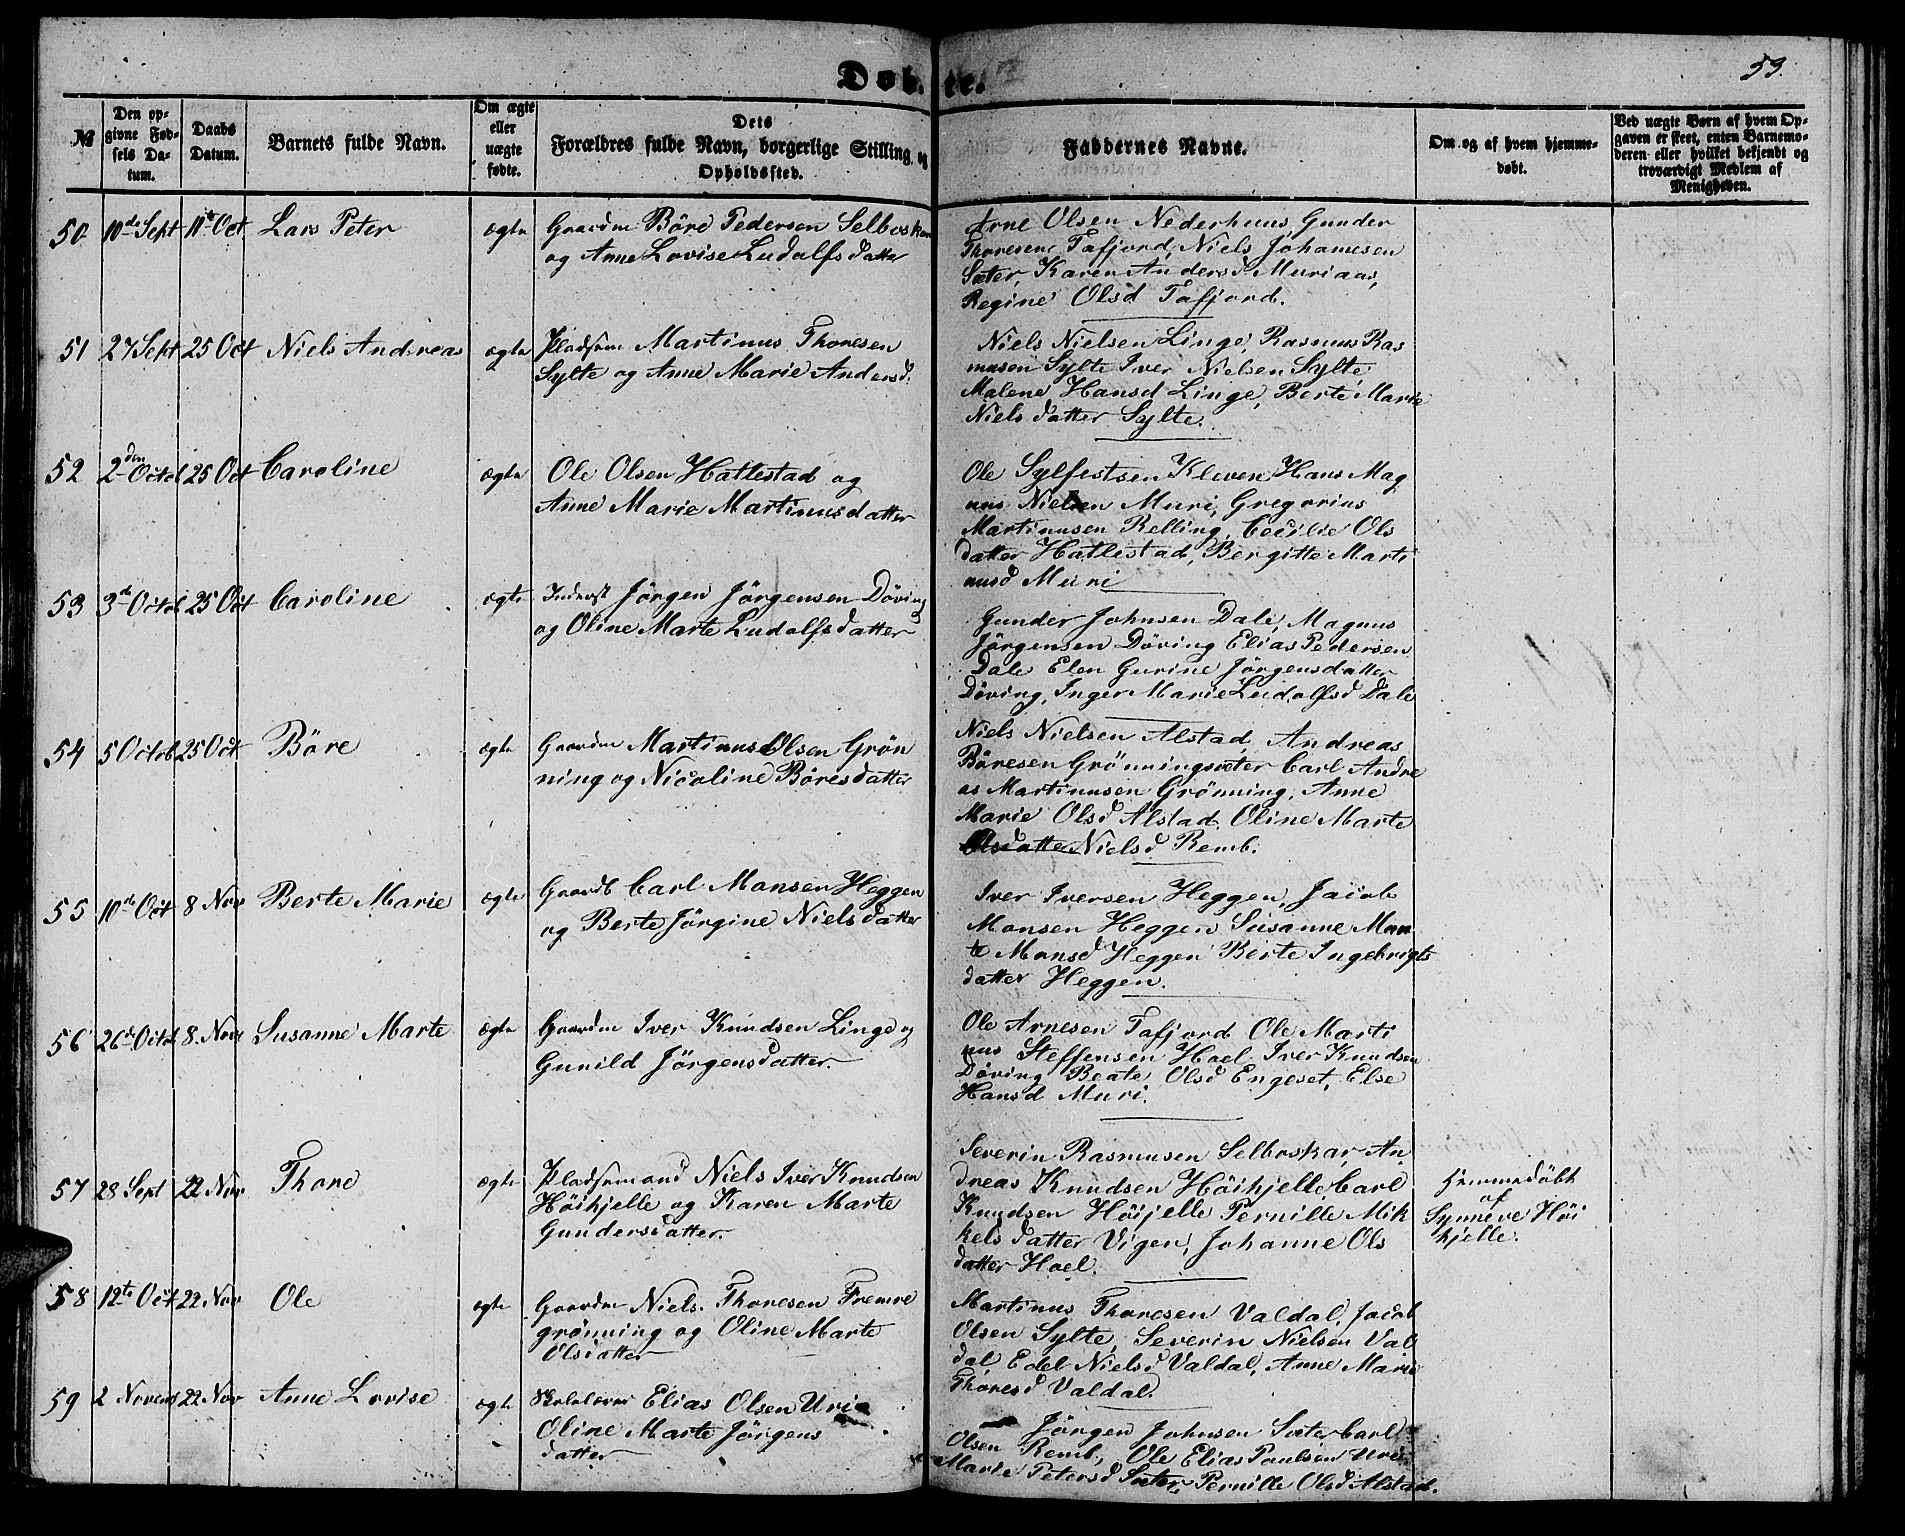 Døbte.
53.
№
Den opgivne Fødsels Datum.
Daabs Datum.
Barnets fulde Navn.
Om ægte eller uægte fødte.
Dets Forældres fulde Navn, borgerlige Stilling og Opholdssted.
Faddernes Navne.
Om og af hvem hjemmedøbt.
Ved uægte Børn af hvem Opgaven er skeet, enten Barnemoderen eller hvilket bekjendt og troværdigt Medlem af Menigheden.
50 10de Sept 11te Oct Lars Peter ægte
Gaardm Böre Pedersen Selboskar
og Anne Lovise Ludolfsdatter
Arne Olsen Nederhuus, Gunder
Thoresen Tafjord, Niels Johannesen
Sæter, Karen Andersd Muriaas,
Regine Olsd Tafjord.
51 27 Sept 25 Oct Niels Andreas ægte
Pladsem Martinus Thoresen
Sylte og Anne Marie Andersd.
Niels Nielsen Linge, Rasmus Ras
musen Sylte Iver Nielsen Sylte,
Malene Hansd Linge, Berte Marie
Nielsdatter Sylte.
52 2den Octob 25 Oct Caroline ægte
Ole Olsen Hatlestad og
Anne Marie Martinusdatter
Ole Sylfestsen Kleven, Hans Mag
nus Nielsen Muri, Gregorius
Martinusen Relling, Cecilie Ols
datter Hatlestad, Bergitte Marti
nusd Muri
53 3de Octob 25 Oct Caroline ægte
Inderst Jörgen Jörgensen Döving
og Oline Marte Ludolfsdatter
Gunder Johnsen Dale, Magnus
Jörgensen Döving Elias Pedersen
Dale Elen Gurine Jörgensdatter
Döving, Inger Marie Ludolfsd Dale
54 5 Octob 25 Oct Böre ægte
Gaardm Martinus Olsen Grön
ning og Nicoline Böresdatter
Niels Nielsen Alstad, Andreas
Böresen Grönningsæter Carl Andre
as Martinusen Grönning, Anne
Marie Olsd Alstad, Oline Marte
Olsdatter Nielsd Remb.
55 10de Oct 8 Nov Berte Marie ægte
Gaardb Carl Monsen Heggen
og Berte Jörgine Nielsdatter
Iver Iversen Heggen, Jacob
Monsen Heggen Susanne Mar
te Monsd Heggen Berte Ingebrigts
datter Heggen.
56 26de Octob 8. Nov Susanne Marte ægte
Gaardm Iver Knudsen Linge og
Gunild Jörgensdatter.
Ole Arnesen Tafjord Ole Marti
nus Steffensen Hoel, Iver Knudsen
Döving Beate Olsd Engeset, Else
Hansd Muri.
57 28 Sept 22 Nov Thore ægte
Pladsemand Niels Iver Knudsen
Höihjelle og Karen Marte
Gundersdatter.
Severin Rasmusen Selboskar, An
dreas Knudsen Höihjelle, Carl
Knudsen Höijelle Pernille Mik
kelsdatter Vigen, Johanne Ols
datter Hoel.
Hjemmedöbt
af
Synneve Höi
hjelle.
58 12te Oct 22 Nov Ole ægte
Gaardm Niels Thoresen Fremre
grönning og Oline Marte
Olsdatter
Martinus Thoresen Valdal, Jacob
Olsen Sylte, Severin Nielsen Val
dal Edel Nielsd Valdal, Anne Marie
Thoresd Valdal.
59 2 Novemb 22 Nov Anne Lovise ægte
Skolelærer Elias Olsen Uri
Oline Marte Jörgens
datter
Jörgen Johnsen Sæter Carl
Olsen Remb, Ole Elias Paulsen Uri
Marie Petersd Sæter, Pernille Olsd Alstad.